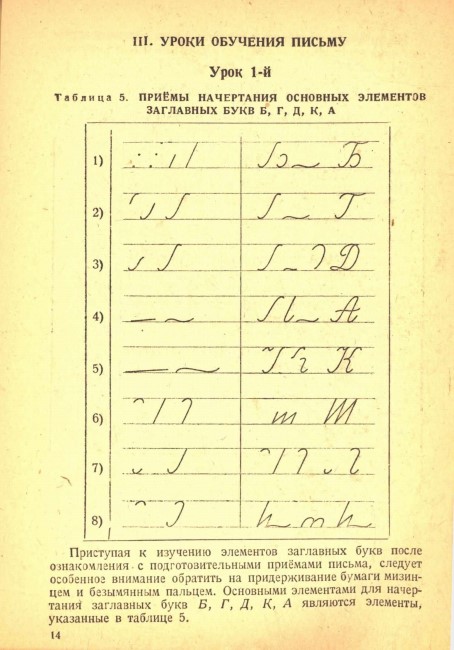 III. УРОКИ ОБУЧЕНИЯ ПИСЬМУ
Урок 1-й
Таблица 5. ПРИЁМЫ НАЧЕРТАНИЯ ОСНОВНЫХ ЭЛЕМЕНТОВ
ЗАГЛАВНЫХ БУКВ Б, Г, Д, К, А
1) Б
2) Г
3) Д
4) А
5) К
6) т Ш
7)
8)
Приступая к изучению элементов заглавных букв после
ознакомления с подготовительными приёмами письма, следует
особенное внимание обратить на придерживание бумаги мизин-
цем и безымянным пальцем. Основными элементами для начер-
тания заглавных букв Б, Г, Д, К, А являются элементы,
указанные в таблице 5.
14